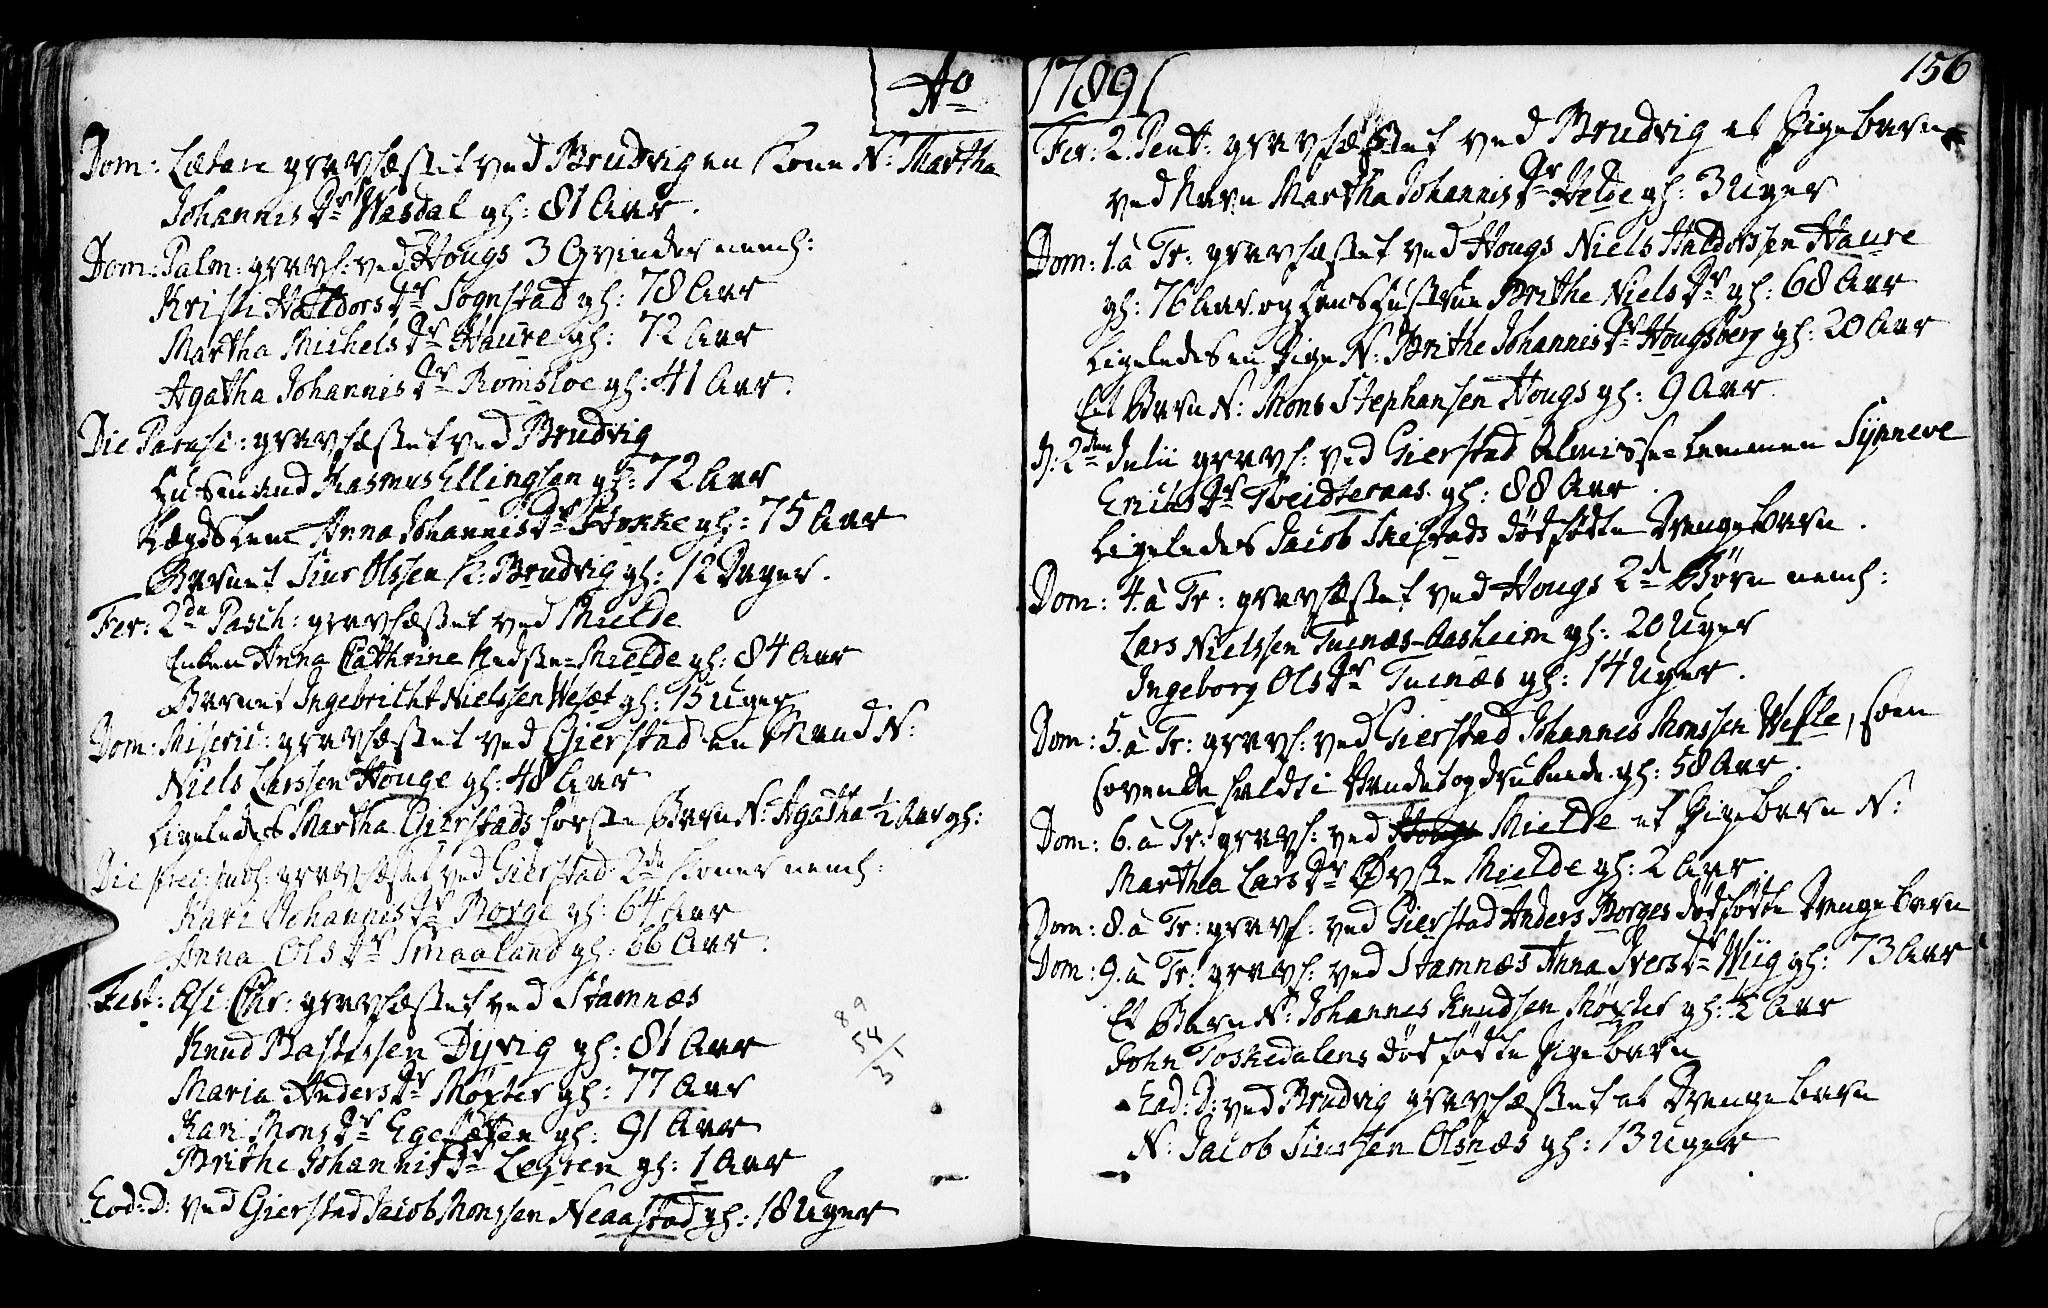 Ao
Dom: Lætare gravfæstet ved Brudvig en Kone N: Martha
Johannis Dr Wasdal gl: 81 Aar.
Dom: Palm: gravf: ved Hougs 3 Qvinder neml:
Kristi Haldors Dr Sognstad gl: 78 Aar
Martha Michels Dr Haure gl: 72 Aar
Agatha Johannis Dr Romsloe gl: 41 Aar.
Die Parasc: gravfæstet ved Brudvig
Husmand Rasmus Ellingsen gl: 72 Aar
Lægdslem Anna Johannis Dr Stokke gl: 75 Aar
Barnet Siur Olssen Brudvig gl: 12 Dager.
Fer: 2da Pasch: gravfæstet ved Mielde
Enken Anna Cathrine Nedste Mielde gl: 84 Aar
Barnet Ingebricht Nielssen Wesæt gl: 15 Uger
Dom: Miseric: gravfæstet ved Gierstad en Mand N:
Niels Larssen Houge gl: 48 Aar
Ligeledes Martha Gierstads første Barn N: Agatha ½ Aar gl:
Die prec: publ: gravfæstet ved Gierstad 2de Koner neml:
Kari Johannis Dr Borge gl: 64 Aar
Anna Ols Dr Smaaland gl: 66 Aar.
Fest: Asc: Chr: gravfæstet ved Stamnæs
Knud Bastessen Dyvig gl: 81 Aar
Maria Anders Dr Møxter gl: 77 Aar
Kari Mons Dr gl: 91 Aar
Brithe Johannis Dr gl: 1 Aar
Eod: D: ved Gierstad Jacob Monssen Neaastad gl: 18 Uger
89
54
/1
3
1789
156
Fer: 2. Pent: gravfæstet ved Brudvig et Pigebarn
ved Navn Martha Johannis Dr Helde gl: 3 Uger
Dom: 1. à Tr: gravfæstet ved Hougs Niels Haldorssen Haure
gl: 76 Aar. og hans Hustrue Brithe Niels Dr gl: 68 Aar
Ligeledes en Pige N: Brithe Johannis Dr Hougsberg gl: 20 Aar
Et Barn N: Mons Stephansen Hougs gl: 9 Aar.
D: 2den Julii gravf: ved Gierstad Almisse Lemmen Synneve
Erichs Dr Tveidteraas. gl: 88 Aar.
Ligeledes Jacob Skistads dødfødte Drengebarn.
Dom: 4. à Tr: gravfæstet ved Hougs 2de Børn neml:
Lars Nielssen Tuenæs-Aasheim gl: 20 Uger
Ingeborg Ols Dr Tuenæs gl: 14 Uger.
Dom: 5. à Tr: gravf: ved Gierstad Johannes Monssen Wefle, som
sovende faldt i Vandet og druknede. gl: 58 Aar.
Dom: 6. à Tr: gravf: ved Hougs Mielde et Pigebarn N:
Martha Lars Dr Øvste Mielde gl: 2 Aar.
Dom: 8. à Tr: gravf: ved Gierstad Anders Borges dødfødte Drengebarn
Dom: 9. à Tr: gravf: ved Stamnæs Anna Ivers Dr Wiig gl: 73 Aar
Et Barn N: Johannes Knudsen Møxter gl: ½ Aar
John Toskedalens dødfødte Pigebarn
Eod: D: ved Brudvig gravfæstet et Drengebarn
N: Jacob Siurssen Olsnæs gl: 13 Uger